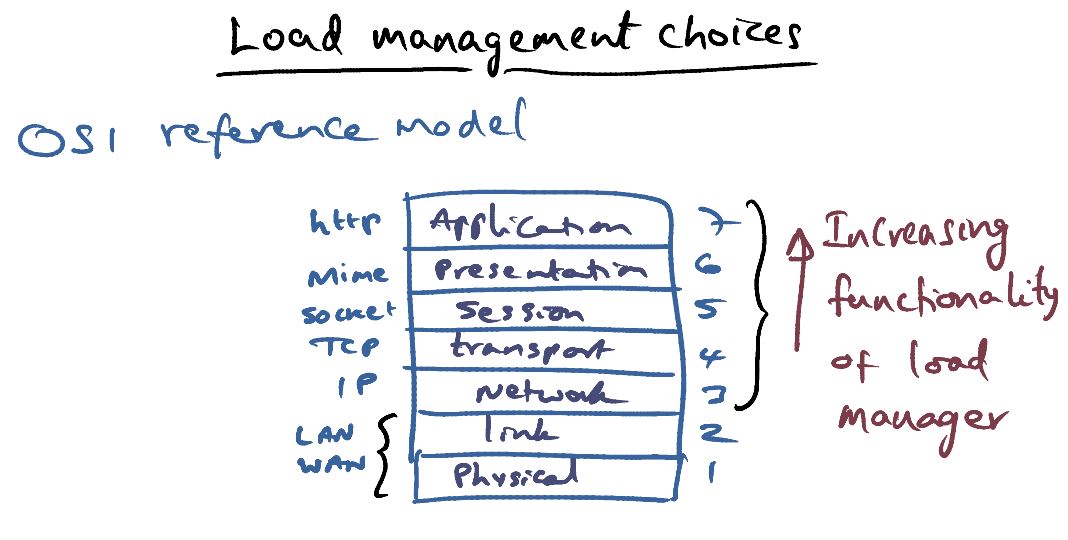 Load management choices
OSI reference model
http Application 7
Mime Presentation 6
socket Session 5
TCP transport 4
IP Network 3
LAN link 2
WAN Physical 1
Increasing
functionality
of load
manager